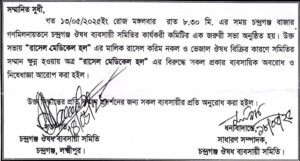 সম্মানিত সুধী,
গত ১৩/০৫/২০২৫ইং রোজ মঙ্গলবার রাত ৮.৩০ মি. এর সময় চন্দ্রগঞ্জ বাজার
গণমিলনায়তনে চন্দ্রগঞ্জ ঔষধ ব্যবসায়ী সমিতির কার্যকরী কমিটির এক জরুরী সভা অনুষ্ঠিত হয়। উক্ত
সভায় "রাসেল মেডিকেল হল" এর মালিক রাসেল করিম নকল ও ভেজাল ঔষধ বিক্রির কারণে সমিতির
সম্মান ক্ষুন্ন হওয়ায় অত্র "রাসেল মেডিকেল হল" এর বিরুদ্ধে সকল প্রকার ব্যবসায়িক অবরোধ ও
নিষেধাজ্ঞা আরোপ করা হইল।
উক্ত প্রতি জন্য সকল ব্যবসায়ীর প্রতি অনুরোধ করা হইল।
ধন্যবাদান্তে
সভাপতি
সাধারণ সম্পাদক,
চন্দ্রগঞ্জ ঔষধ ব্যবসায়ী সমিতি
চন্দ্রগঞ্জ, লক্ষ্মীপুর।
চন্দ্রগঞ্জ ঔষধ ব্যবসায়ী সমিতি